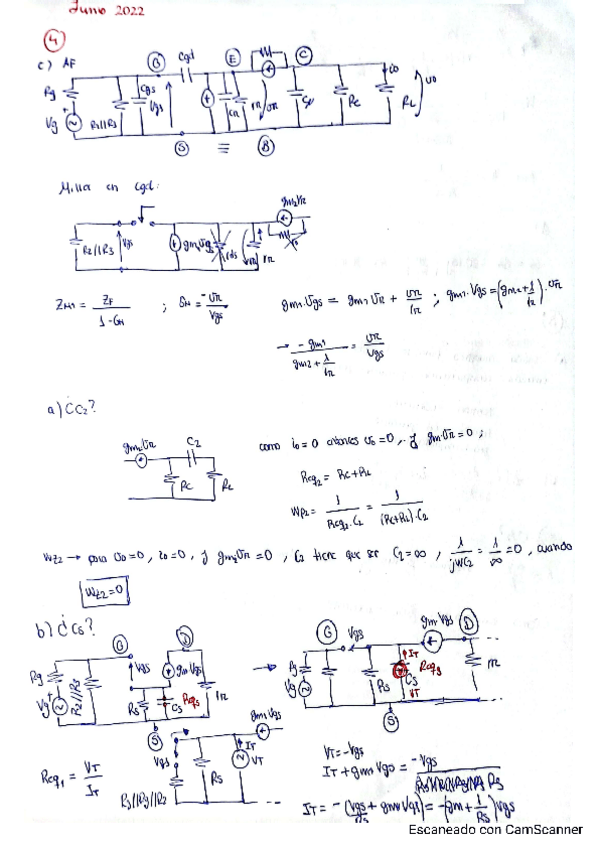 Junio 2022
4
c) AF
G Cgd E C
Rg Vg R2//R3 Cgs Vgs rπ vπ Rc RL vo
S ≡ B
Miller en Cgd:
gm2Vπ
R2//R3 Vgs gm1Vgs rds rπ
ZM1 = ZF / 1-GM ; GM = -Vπ / Vgs gm1·Vgs = gm2 Vπ + Vπ / rπ ; gm1·Vgs = (gm2 + 1/rπ)·Vπ
→ -gm1 / gm2 + 1/rπ = Vπ / Vgs
a) ¿C2?
gm2Vπ C2
Rc RL
como io=0 entonces vo=0, y gm·Vπ=0;
Req2 = Rc+RL
Wp2 = 1 / Req2·C2 = 1 / (Rc+RL)·C2
Wz2 → para vo=0, io=0, y gm2Vπ=0, C2 tiene que ser C2=∞, 1/jWC2 = 1/∞ = 0, cuando
Wz2=0
b) ¿Cs?
G D
Rg Vg R2//R3 Vgs gmVgs Rs Cs Reqs rπ
S
→
G Vgs gmVgs D
Rg Vg Rs IT Reqs Cs VT rπ
S
Req1 = VT / IT
Vgs gmVgs
R3//Rg//R2 Rs IT VT
VT=-Vgs
IT+gmVgs = -Vgs / Rs
IT = -(Vgs/Rs + gmVgs) = -(gm + 1/Rs)Vgs
Escaneado con CamScanner